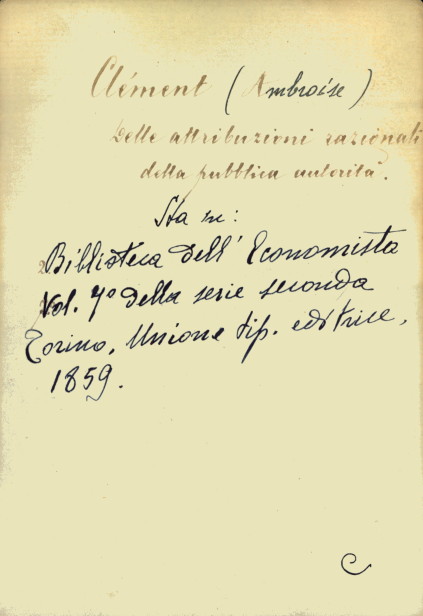 Clément (Ambroise)
Delle attribuzioni razionali
della pubblica autorità.
Sta in:
Biblioteca dell'Economista
Vol. 7º della serie seconda
Torino, Unione tip. editrice,
1859.
C